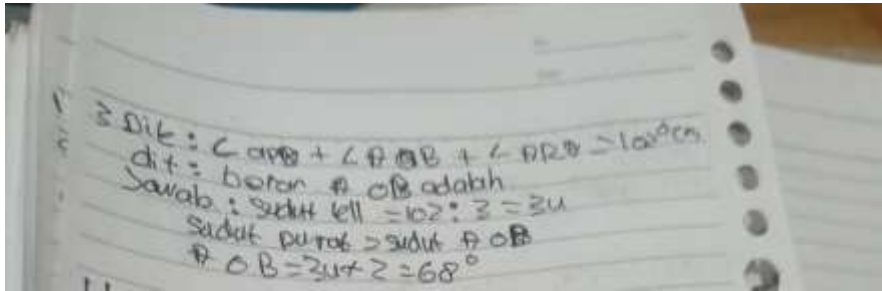 3 Dik : ∠ APB + ∠ A B + ∠ ARB = 102° cm
dit : beran A OB adalah
Jawab : sudut kell = 102 : 3 = 34
Sudut purat = sudut A OB
A OB = 34 x 2 = 68°